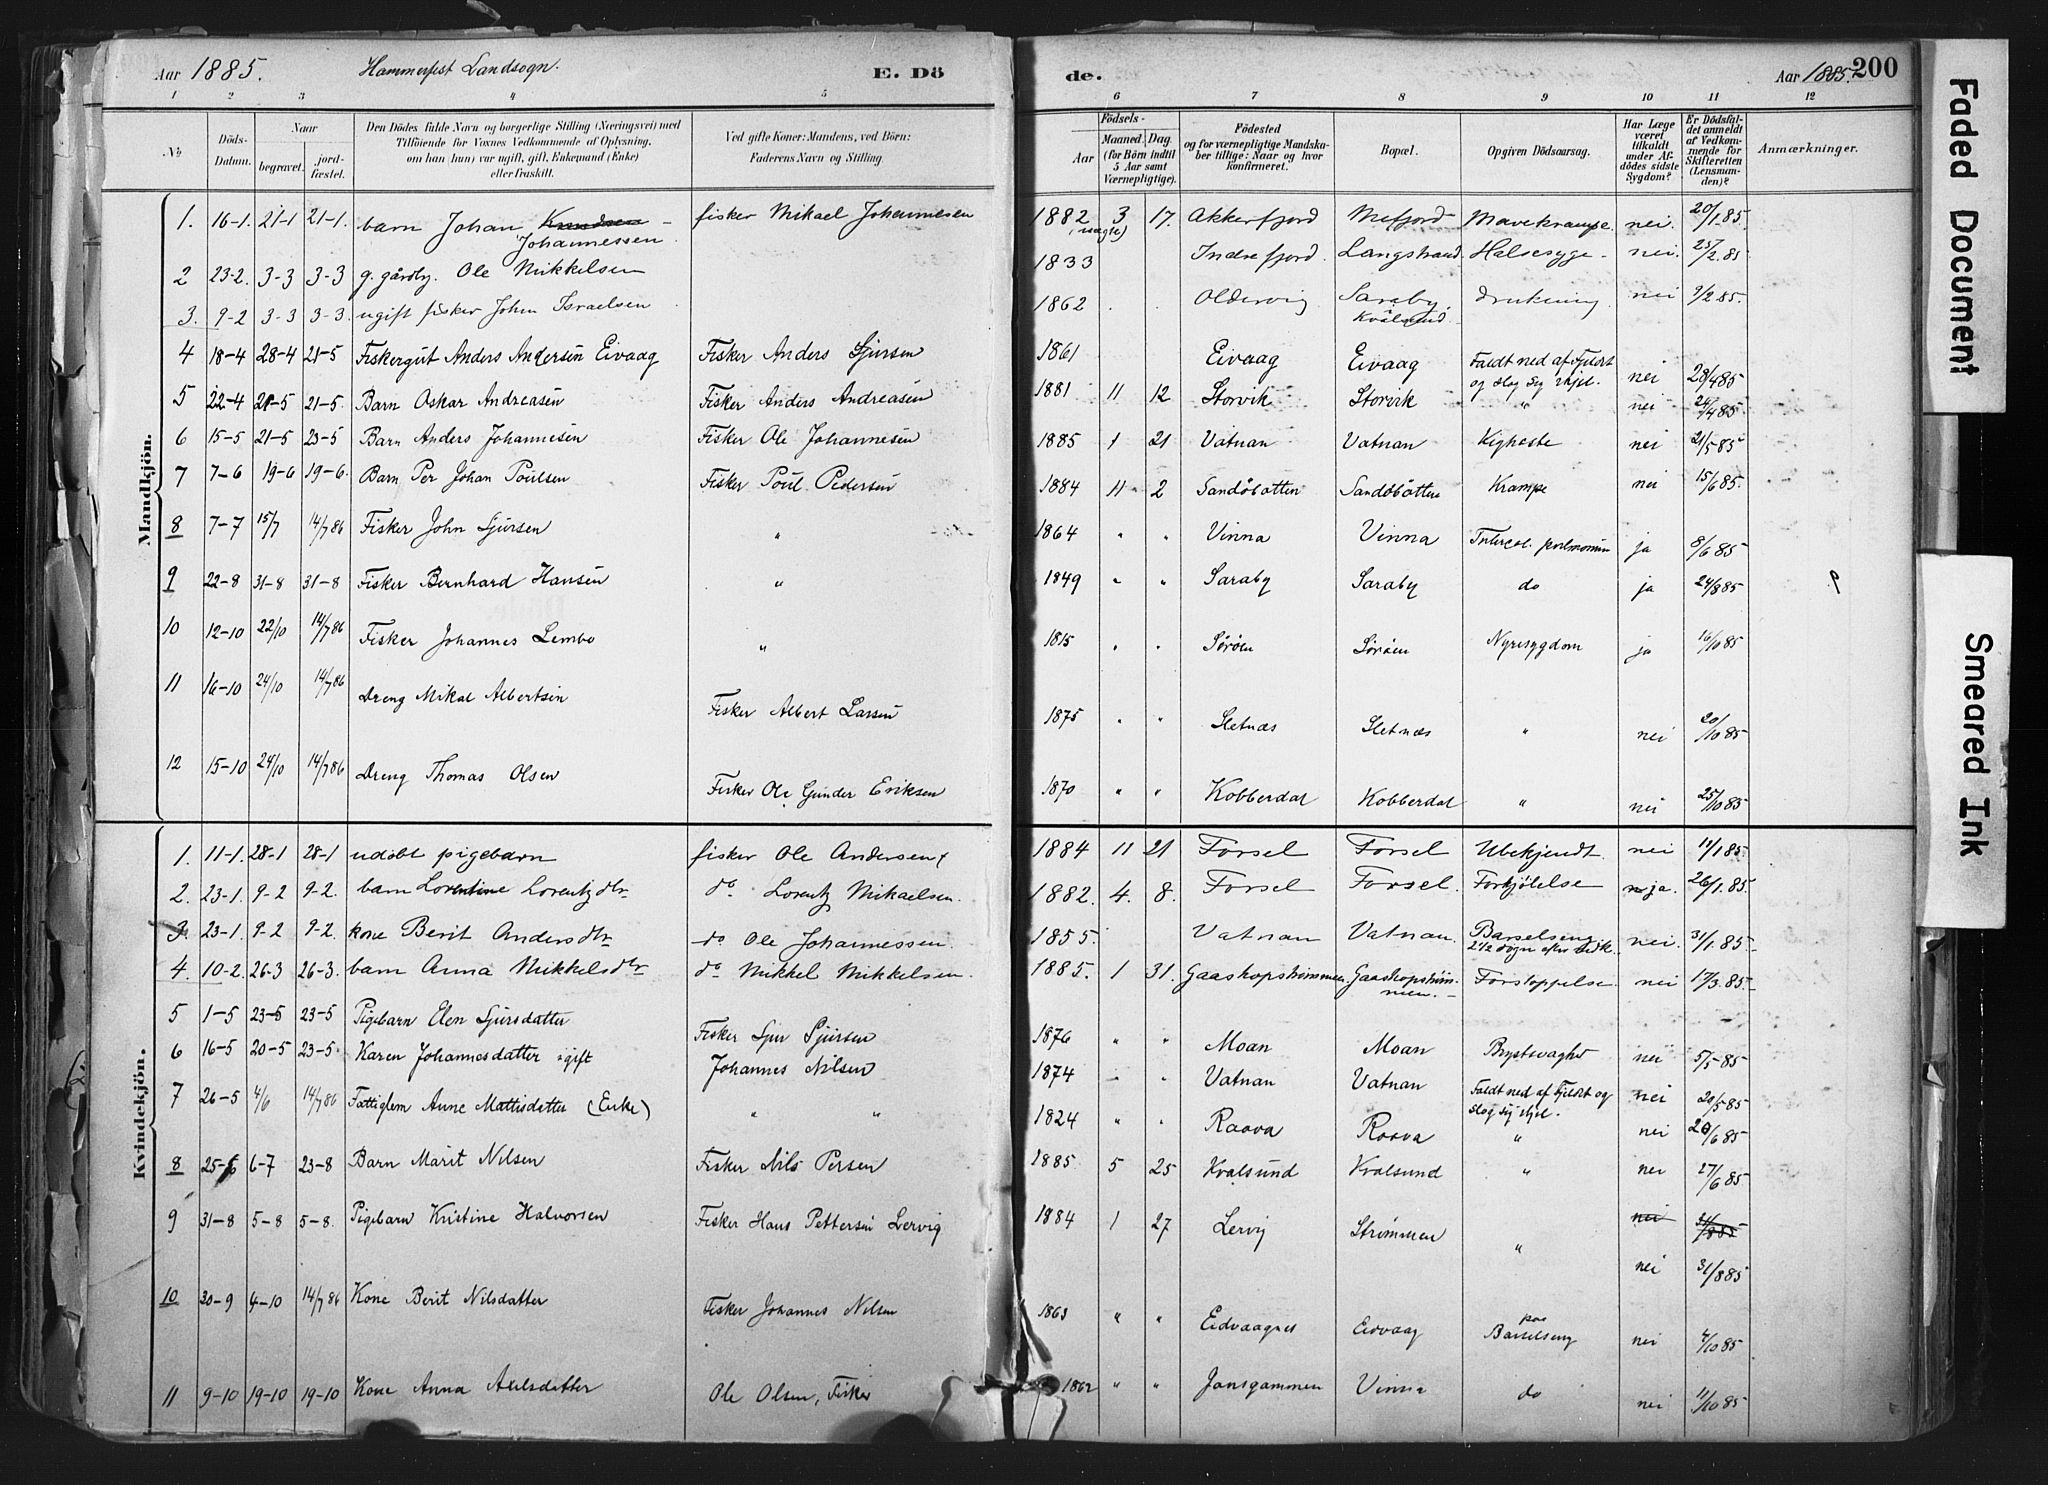 Aar 1885. Hammerfest Landsogn. E. Dö
de. Aar 1885. 200
1 2 3 4 5 6 7 8 9 10 11 12
No
Döds-Datum.
Naar
begravet.
jord-fæstet.
Den Dödes fulde Navn og borgerlige Stilling (Næringsvei) med
Tilföiende for Voxnes Vedkommende af Oplysning,
om han (hun) var ugift, gift, Enkemand (Enke)
eller fraskilt.
Ved gifte Koner: Mandens, ved Börn:
Faderens Navn og Stilling.
Födsels-
Aar
Maaned. Dag.
(for Börn indtil
5 Aar samt
Værnepligtige).
Födested
og for værnepligtige Mandska-
ber tillige: Naar og hvor
konfirmeret.
Bopæl.
Opgiven Dödsaarsag.
Har Læge
været
tilkaldt
under Af-
dödes sidste
Sygdom?
Er Dödsfal-
det anmeldt
af Vedkom-
mende for
Skifteretten
(Lensman-
den)?
Anmærkninger.
Mandkjön.
1. 16-1. 21-1 21-1. barn Johan Knudsen Johannessen. fisker Mikael Johannesen 1882 3 17. Akkerfjord Mefjord Mavekrampe. nei. 20/1.85.
2 23-2. 3-3 3-3 g. gårdbr. Ole Mikkelsen 1833 Indrefjord. Langstrand. Halsesyge. nei. 25/2.85.
3. 9-2 3-3 3-3. ugift fisker Johan Israelsen 1862 Oldervig Saraby. Kvalsund. drukning. nei 9/2.85.
4 18-4 28-4 21-5 Fiskergut Anders Andersen Eivaag Fisker Anders Sjursen 1861 Eivaag Eivaag Faldt ned af Fjeldet og slog sig ihjel. nei 28/4 85
5 22-4 21-5 21-5. Barn Oskar Andreasen Fisker Anders Andreasen 1881 11 12 Storvik Storvik " nei 24/4 85
6 15-5 21-5 23-5 Barn Anders Johannesen Fisker Ole Johannesen 1885 1 21 Vatnan Vatnan Kighoste nei 21/5 85
7 7-6 19-6 19-6. Barn Per Johan Poulsen Fisker Poul Pedersen 1884 11 2 Sandöbotten Sandöbotten Krampe nei 15/6 85.
8 7-7 15/7 14/7 86 Fisker John Sjursen " 1864 " " Vinna Vinna pulmonum ja 8/6 85
9 22-8 31-8 31-8 Fisker Bernhard Hansen " 1849 " " Saraby Saraby do ja 24/8 85
10 12-10 22/10 14/7 86 Fisker Johannes Lembo " 1815 " " Sørøen Sørøen Nyresygdom ja 16/10 85
11 16-10 24/10 14/7 86 Dreng Mikal Albertsen Fisker Albert Larsen 1875 " " Sletnæs Sletnæs " nei 20/10 85
12 15-10 24/10 14/7 86 Dreng Thomas Olsen Fisker Ole Gunder Eriksen 1870 " " Kobberdal Kobberdal " nei 25/10 85
Kvindekjön.
1. 11-1. 28-1 28-1 udöbt pigebarn fisker Ole Andersen 1884 11 21 Forsøl Forsøl Ubekjendt. nei 11/1 85.
2. 23-1. 9-2 9-2. barn Lorentine Lorentzdtr do Lorentz Mikaelsen. 1882. 4. 8. Forsøl Forsøl. Forkjölelse ja. 26/1.85.
3. 23-1. 9-2 9-2. kone Berit Andersdtr do Ole Johannessen. 1855. Vatnan Vatnan. Barselseng 2 1/2 døgn efter nei. 31/1.85.
4. 10-2. 26-3 26-3. barn Anna Mikkelsdtr do Mikkel Mikkelsen. 1885. 1 31. Gaashopstrømmen. Gaashopstrømmen. Forstoppelse nei 17/3.85.
5 1-5 23-5 23-5 Pigebarn Elen Sjursdatter Fisker Sjur Sjursen 1876 " " Moan Moan Brystsvaghed nei 5/5 85
6 16-5 20-5 23-5. Karen Johannesdatter ugift Johannes Nilsen 1874 " " Vatnan Vatnan Faldt ned af Fjeldet og slog sig ihjel. nei 20/5 85
7 26-5 4/6 14/7 86 Fattiglem Anne Mattisdatter (Enke) " " 1824 " " Raava Raava " nei 20/6 85
8 25-6 6-7 23-8 Barn Marit Nilsen Fisker Nils Persen 1885 5 25 Kvalsund Kvalsund " nei 27/6 85
9 31-8 5-8 5-8. Pigebarn Kristine Halvorsen Fisker Hans Pettersen Lervig 1884 1 27 Lervig Strømmen " nei 31/8 85
nei 31/8 85
10 30-9 4-10 14/7 86 Kone Berit Nilsdatter Fisker Johannes Nilsen 1863 " " Eidvaagnes Eidvaag paa Barselseng nei 4/10 85
11 9-10 19-10 19-10 Kone Anna Axelsdatter Ole Olsen, Fisker 1862 " " Jansgammen Vinna do nei 11/10 85
Faded Document
Smeared Ink